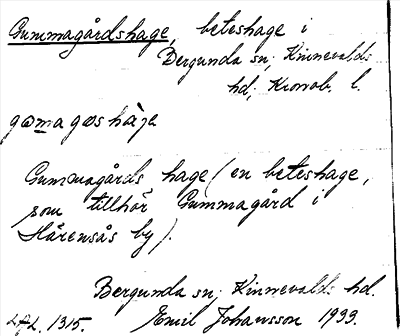 Gummagårdshage, beteshage i
Bergunda sn; Kinnevalds
hd; Kronob. l.
gømagøshàje
Gummagårds hage (en beteshage,
som tillhör Gummagård i
Härensås by).
Bergunda sn; Kinnevalds hd.
1315. Emil Johansson 1933.